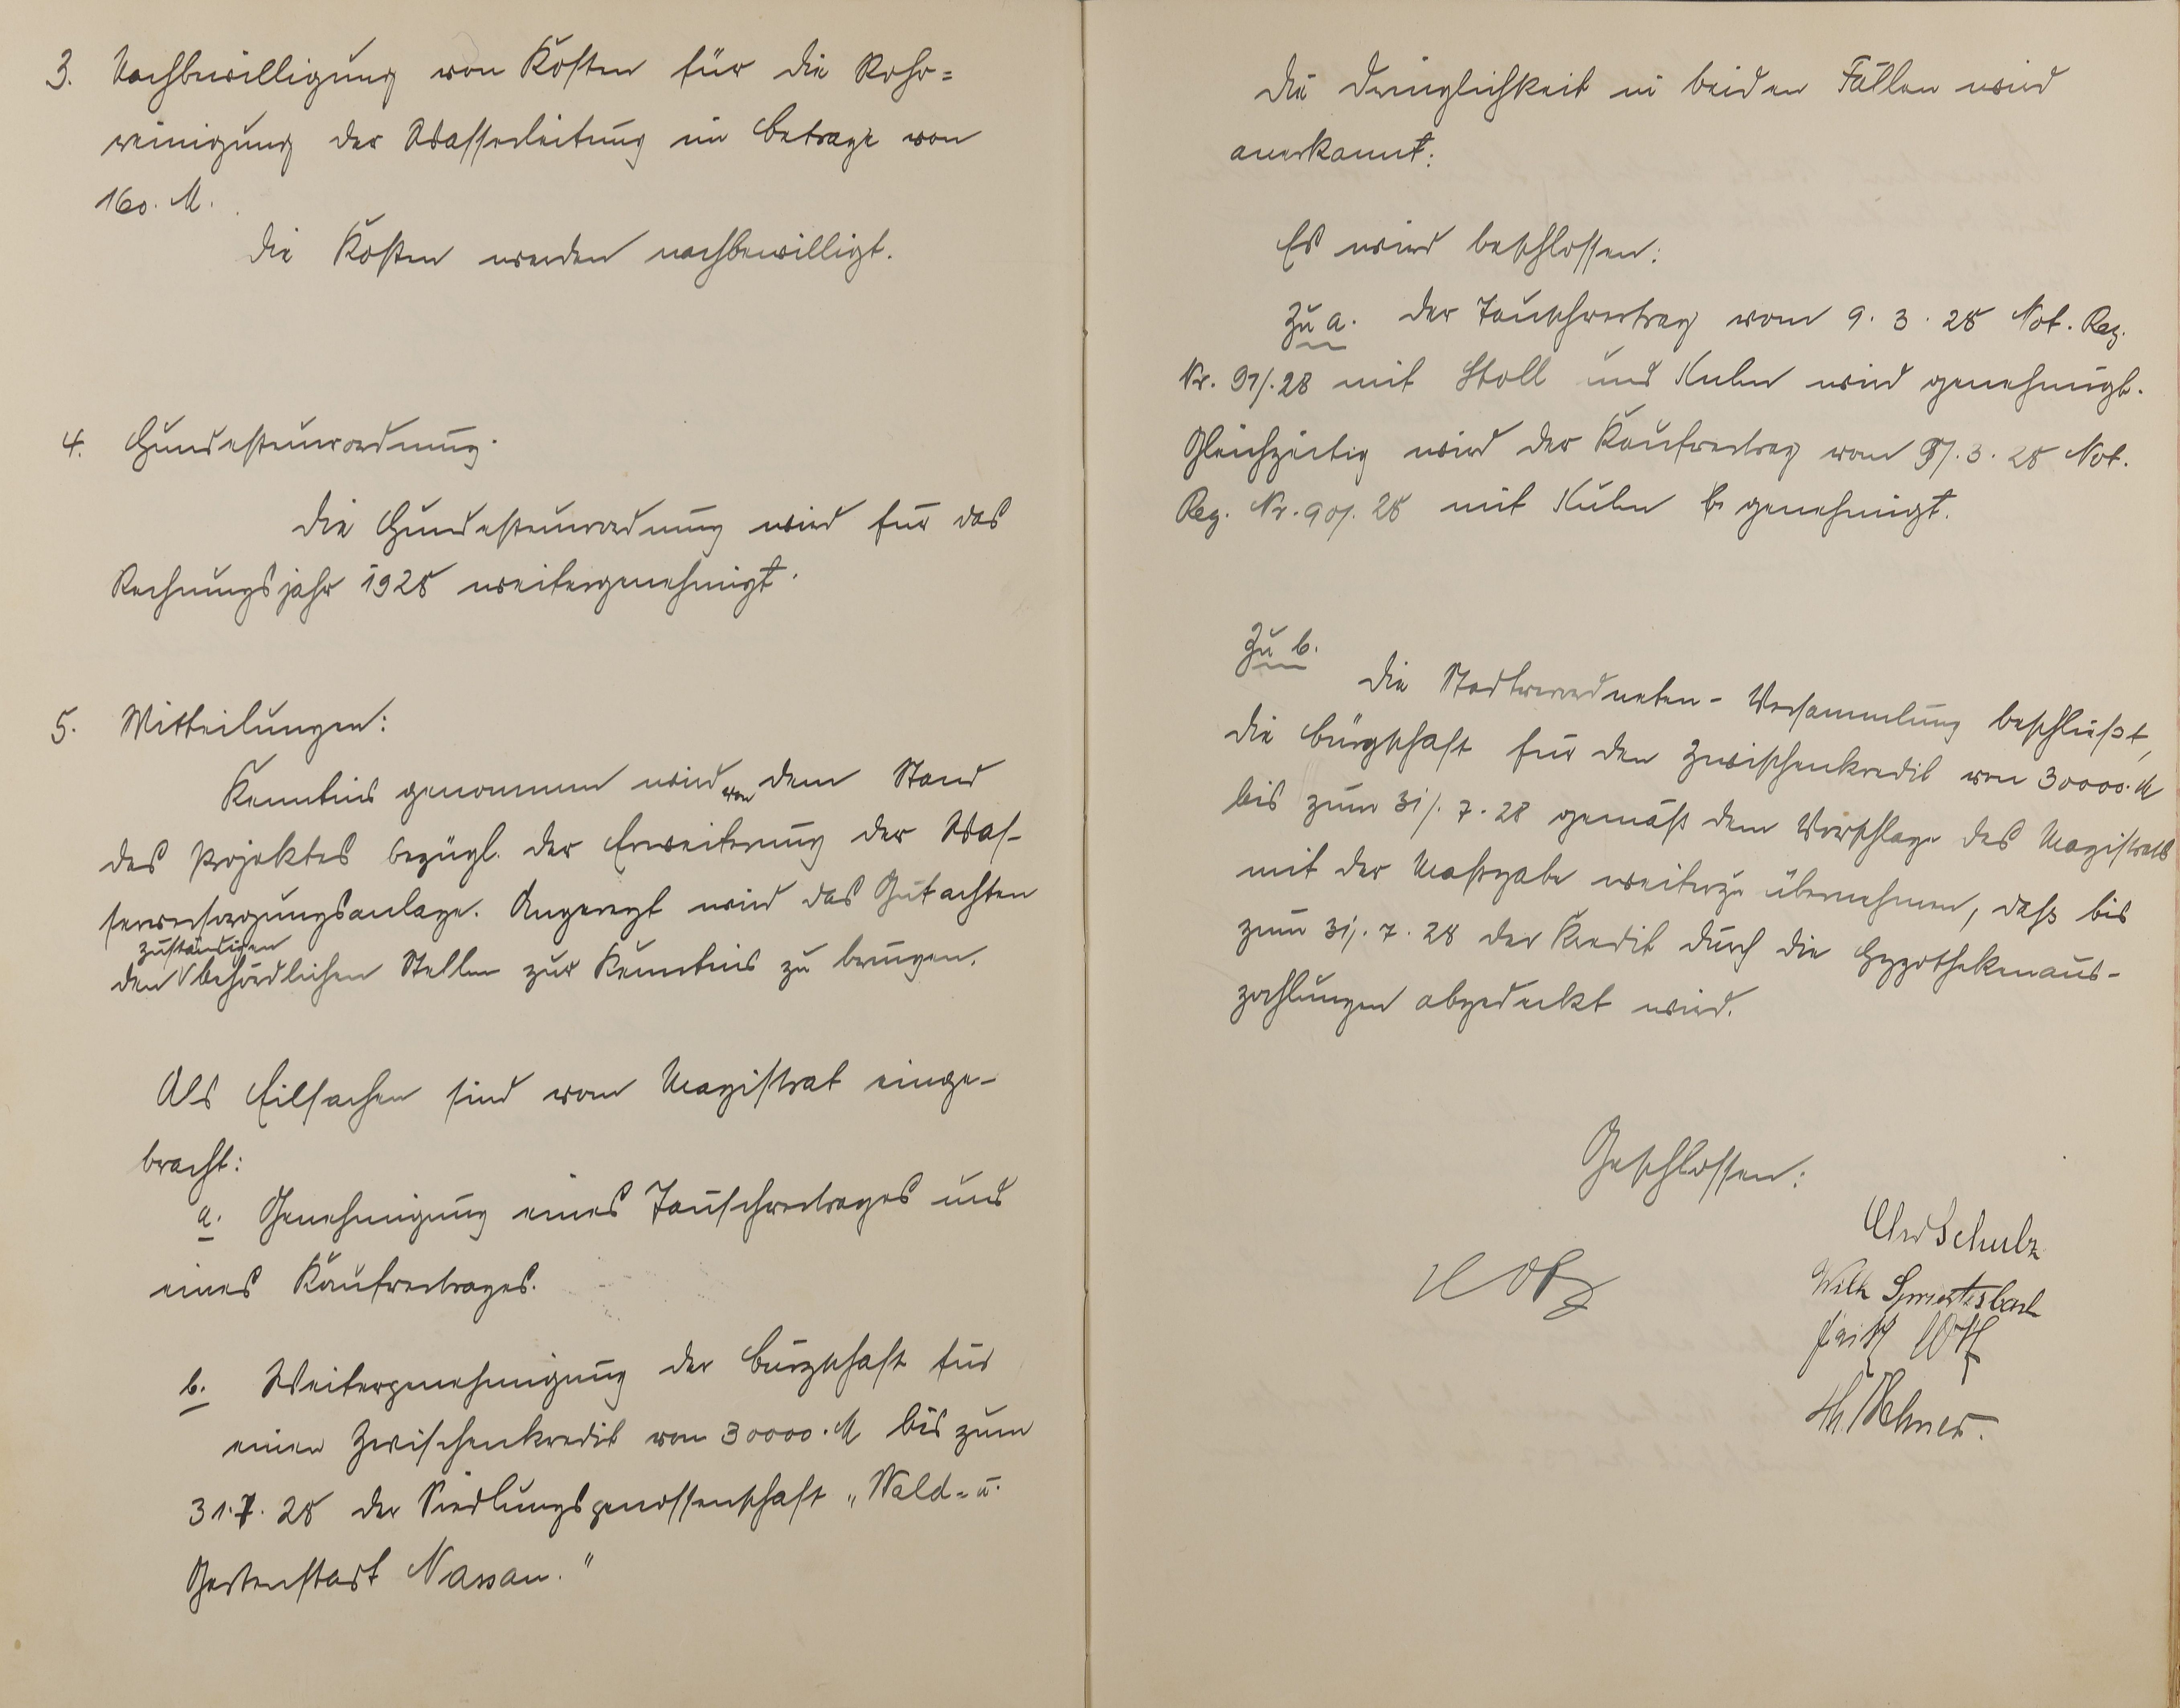 3. Nachbewilligung von Kosten für die Rohr=
reinigung der Wasserleitung im Betrage von
160. M.
Die Kosten werden nachbewilligt.
4. Hundesteuerordnung.
Die Hundesteuerordnung wird für das
Rechnungsjahr 1928 weitergenehmigt.
5. Mitteilungen:
Kenntnis genommen wird von dem Stand
des Projektes bezügl. der Erweiterung der Was-
serversorgungsanlage. Angeregt wird das Gutachten
zuständigen
den behördlichen Stellen zur Kenntnis zu bringen.
Als Eilsachen sind vom Magistrat einge-
bracht:
a. Genehmigung eines Tauschvertrages und
eines Kaufvertrages.
b. Weitergenehmigung der Bürgschaft für
einen Zwischenkredit von 30000. M bis zum
31.7.28 der Siedlungsgenossenschaft „Wald- u.
Gartenstadt Nassau."
Die Dringlichkeit in beiden Fällen wird
anerkannt:
Es wird beschlossen:
Zu a. Der Tauschvertrag vom 9. 3. 28 Not. Reg.
Nr. 91/.28 mit Stoll und Kuhn wird genehmigt.
Gleichzeitig wird der Kaufvertrag vom 9/.3.28 Not.
Reg. Nr. 90/.28 mit Kuhn genehmigt.
Zu b.
Die Stadtverordneten-Versammlung beschließt,
die Bürgschaft für den Zwischenkredit von 30000. M
bis zum 31/.7.28 gemäß dem Vorschlage des Magistrats
mit der Maßgabe weiterzu übernehmen, daß bis
zum 31/.7.28 der Kredit durch die Hypothekenaus-
zahlungen abgedeckt wird.
Geschlossen:
Schulz
Wilh
Fritz
Th.